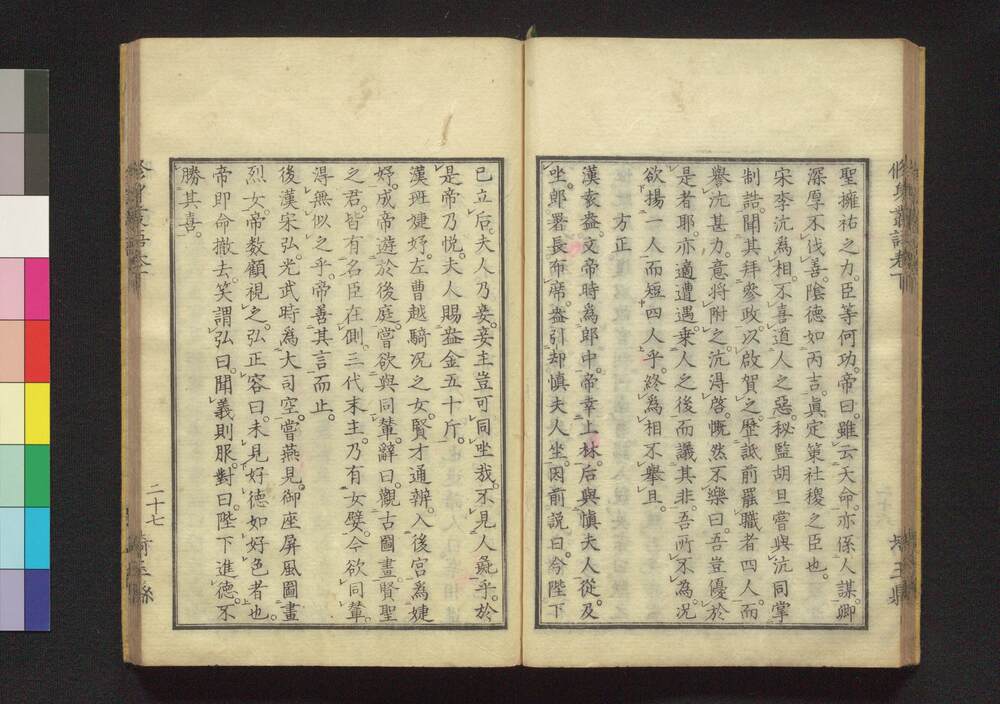 聖擁祐之力。臣等何功。帝曰。雖云天命。亦係人謀。卿
深厚不伐善。陰德如丙吉。眞定策社稷之臣也。
宋李沆爲相。不喜道人之惡。秘監胡旦嘗與沆同掌
制誥。聞其拜參政。以啟賀之。歷詆前罷職者四人。而
譽沆甚力。意將附之。沆得啓。慨然不樂曰。吾豈優於
是者耶。亦適遭遇。乗人之後而議其非。吾所不爲。况
欲揚一人而短四人乎。終爲相不擧旦。
方正
漢袁盎。文帝時爲郎中。帝幸上林。后與愼夫人從。及
坐。郎署長布席。盎引却愼夫人坐。因前說曰。今陛下
已立后。夫人乃妾。妾主豈可同坐哉。不見人彘乎。於
是帝乃悦。夫人賜盎金五十斤。
漢班婕妤。左曹越騎况之女。賢才通辨。入後宮爲婕
妤。成帝遊於後庭。嘗欲與同輦。辭曰。觀古圖畫。賢聖
之君。皆有名臣在側。三代末主。乃有女嬖。今欲同輦。
得無似之乎。帝善其言而止。
後漢宋弘。光武時爲大司空。嘗燕見。御座屏風圖畫
烈女。帝数顧視之。弘正容曰。未見好德如好色者也。
帝卽命撤去。笑謂弘曰。聞義則服。對曰。陛下進德。不
勝其喜。
二十七